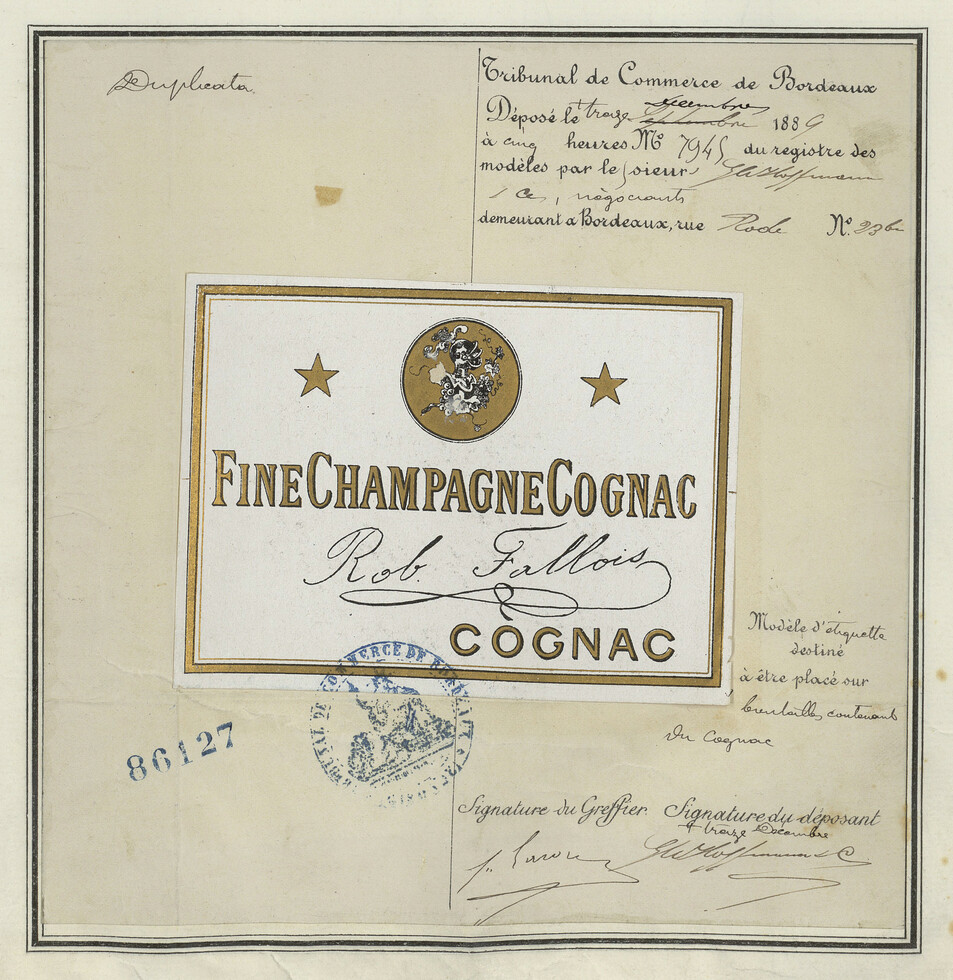 Duplicata
Tribunal de Commerce de Bordeaux
décembre
Déposé le treize septembre 1889
à cinq heures No 7945 du registre des
modèles par le sieur GW Hoffmann
& Ce, négociants
demeurant a Bordeaux, rue Rode No. 23 bis
FINE CHAMPAGNE COGNAC
Rob. Fallois
COGNAC
Modèle d'étiquette
destiné
à être placé sur
bouteilles contenant
du Cognac
TRIBUNAL DE COMMERCE DE BORDEAUX
86127
Signature du Greffier. Signature du déposant
treize Décembre
GW Hoffmann & C